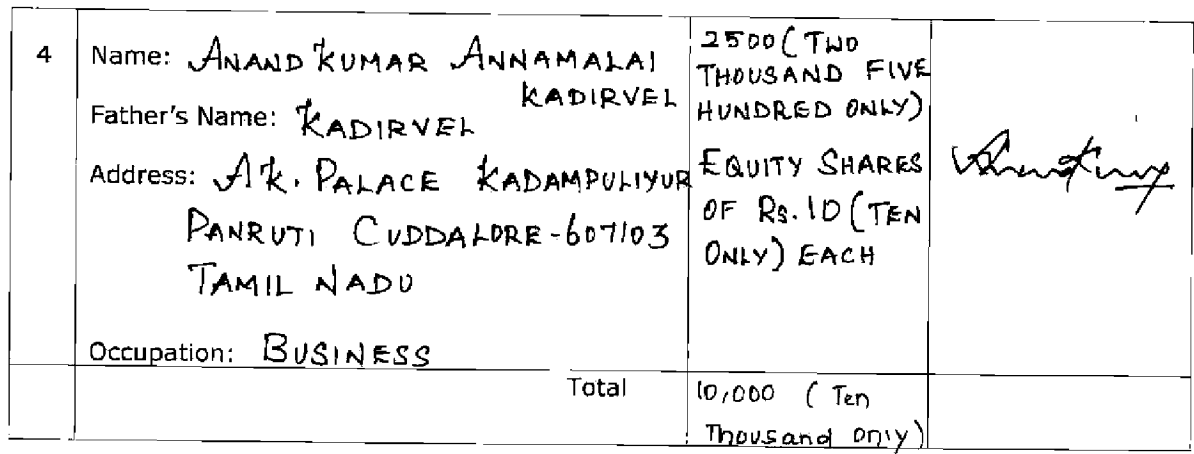 4
Name: ANAND KUMAR ANNAMALAI
KADIRVEL
Father's Name: KADIRVEL
Address: A.K. PALACE KADAMPULIYUR
PANRUTI CUDDALORE-607103
TAMIL NADU
Occupation: BUSINESS
2500 (TWO
THOUSAND FIVE
HUNDRED ONLY)
EQUITY SHARES
OF Rs.10 (TEN
ONLY) EACH
Total
10,000 (Ten
Thousand only)